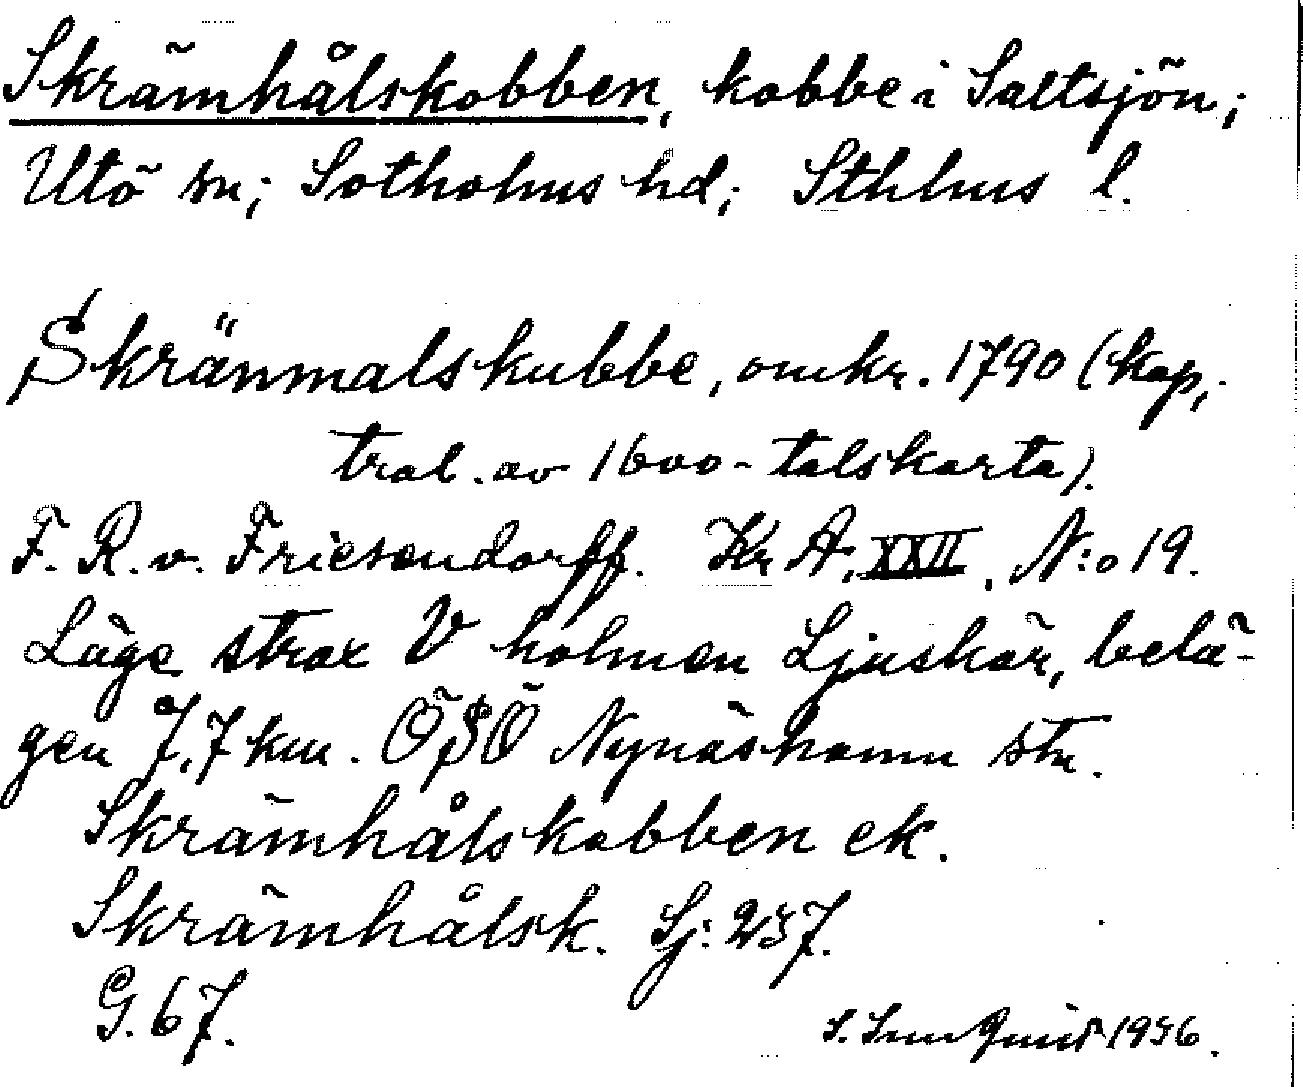 Skrämhålskobben, kobbe i Saltsjön;
Utö sn; Sotholms hd; Sthlms l.
Skränmalskubbe, omkr. 1790 (kop,
trol. av 1600-talskarta).
F. R. v. Friesendorff. Kr A, XXII, N:o 19.
Läge strax V holmen Ljuskär, belä-
gen 7,7 km. ÖSÖ Nynäshamn stn.
Skrämhålskobben ek.
Skrämhålsk. Sj: 237.
G. 67.
S. 1936.